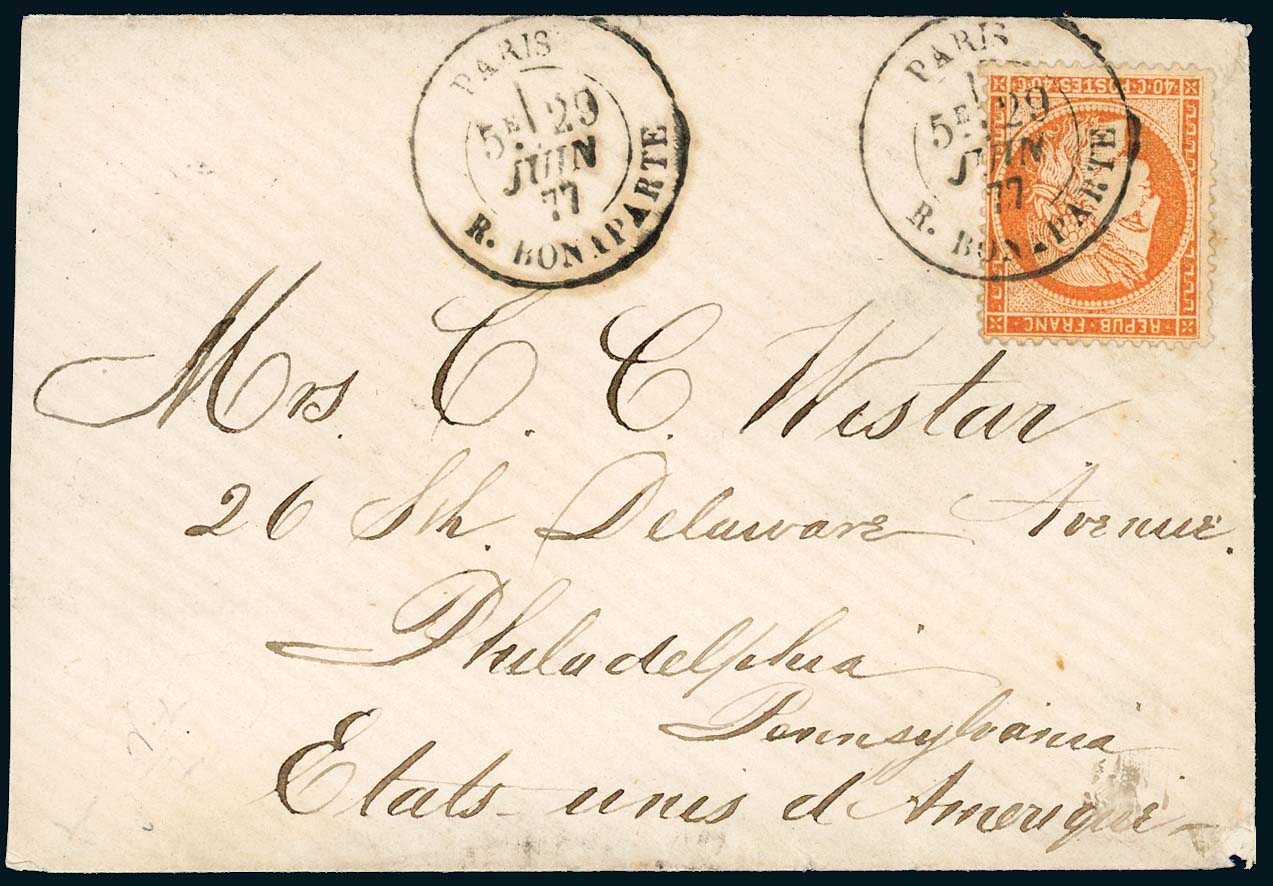 PARIS
5E 29
JUIN
77
R. BONAPARTE
PARIS
5E 29
JUIN
77
R. BONAPARTE
40·C·POSTES·40·C
REPUB·FRANC·
Mrs. C. C. Wistar
26 Sth. Delaware Avenue.
Philadelphia
Pennsylvania
Etats-unis d'Amerique-